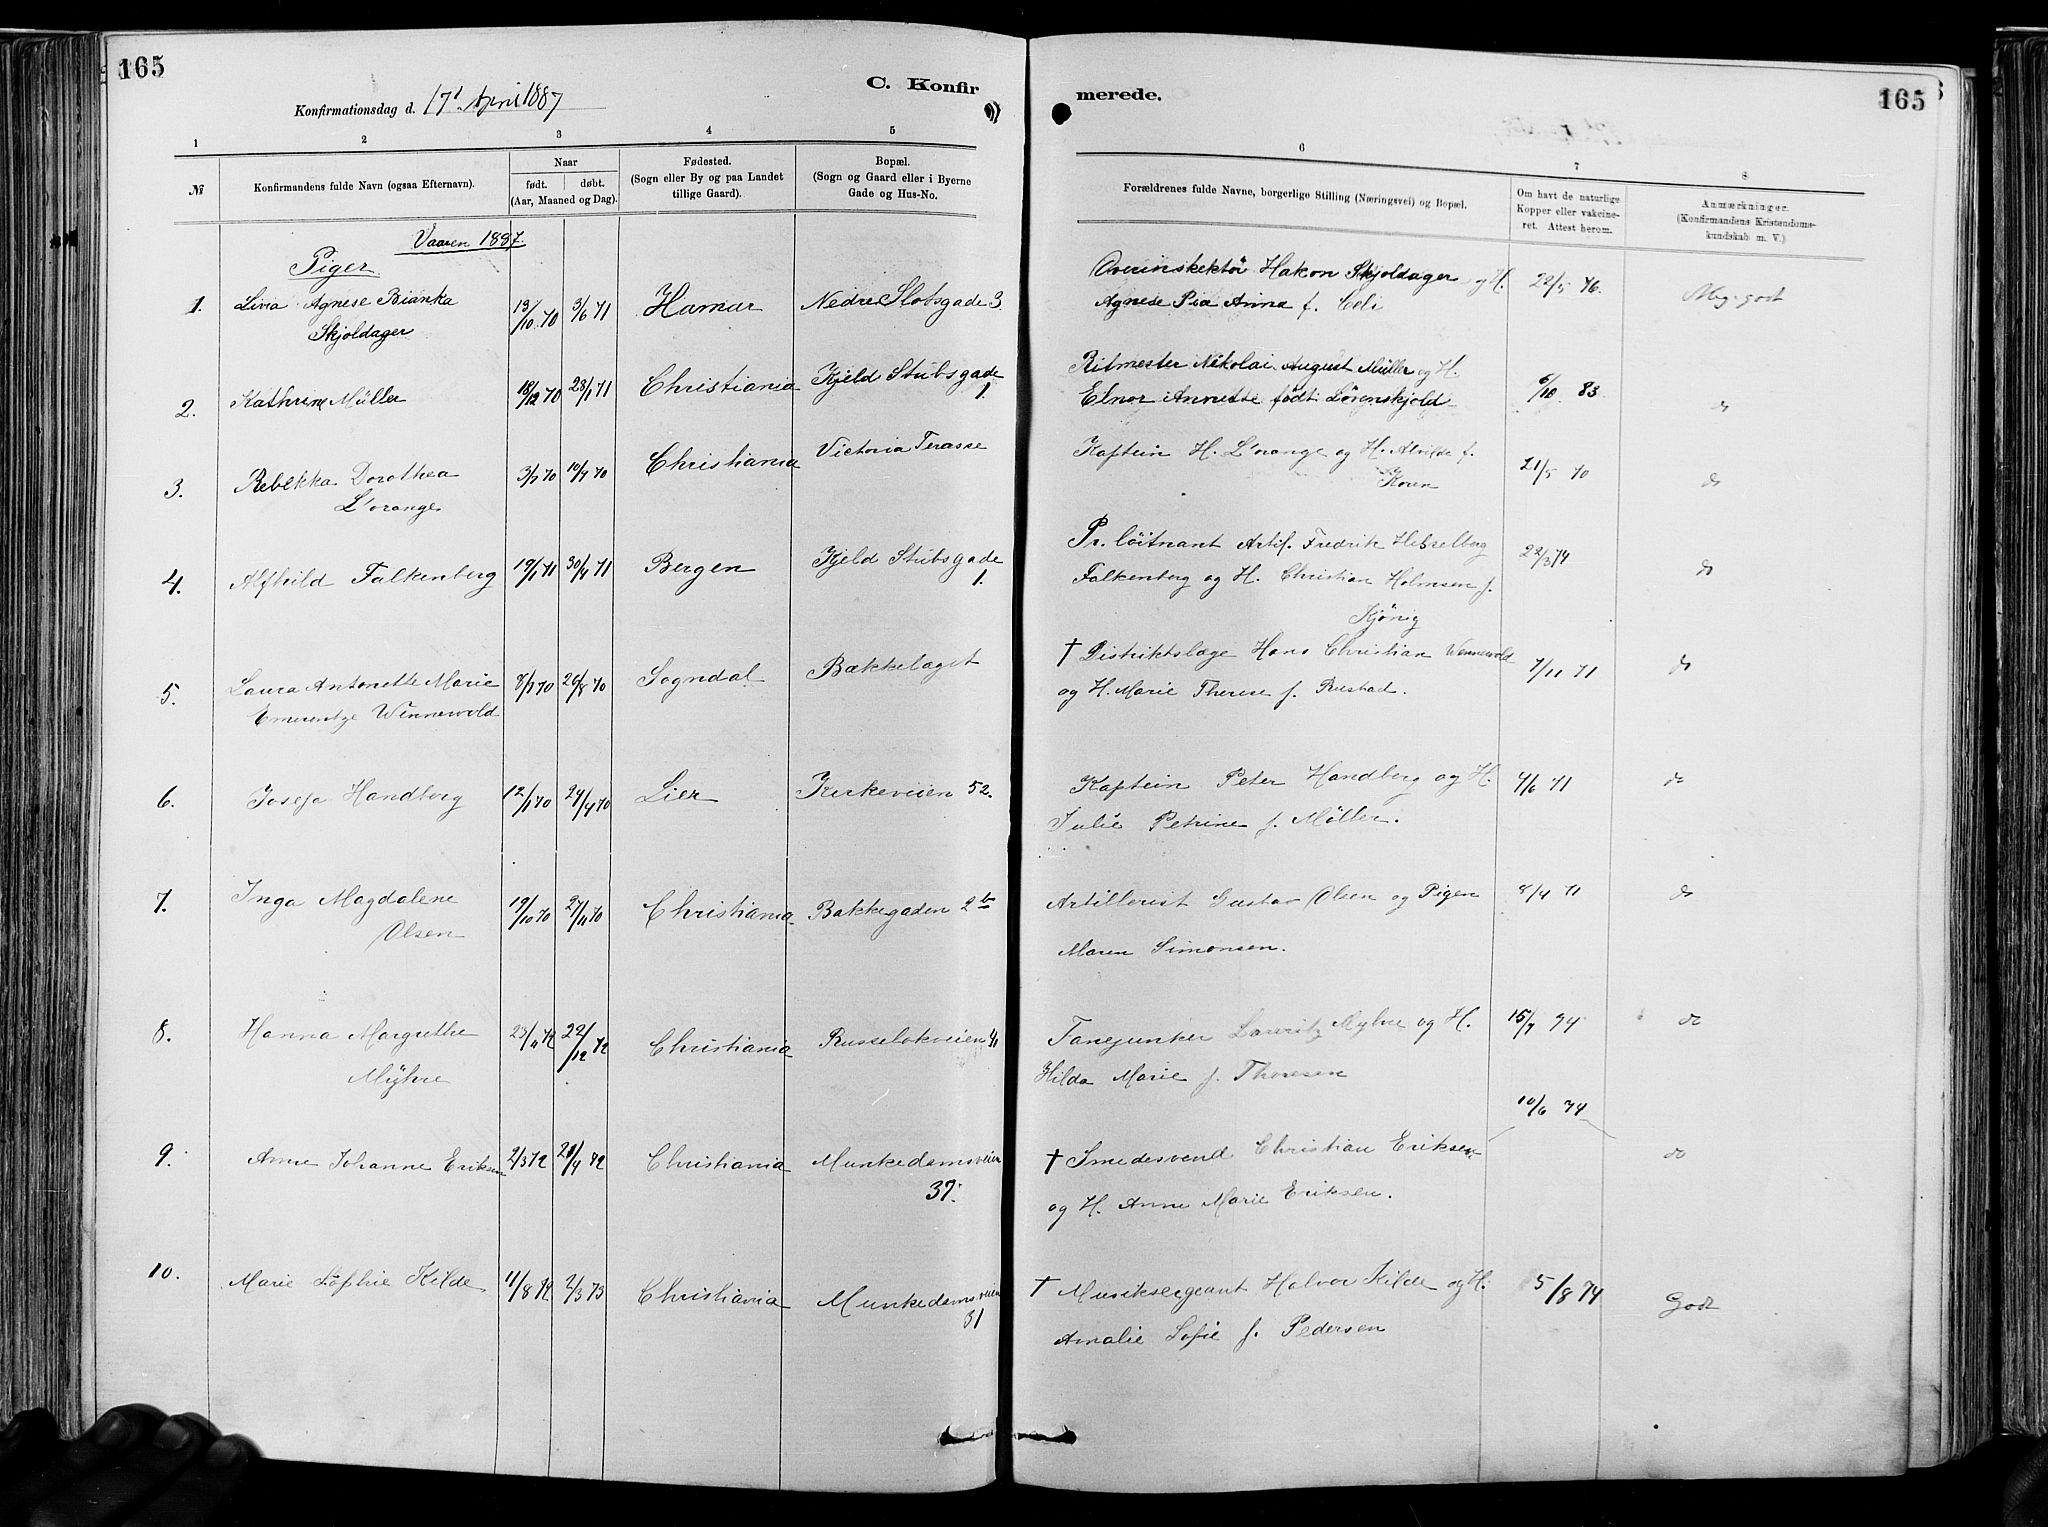 165
C. Konfir
merede.
165
Konfirmationsdag d. 17d April 1887
1 2 3 4 5 6 7 8
№ Konfirmandens fulde Navn (ogsaa Efternavn).
Naar
født. døbt.
(Aar, Maaned og Dag).
Fødested.
(Sogn eller By og paa Landet
tillige Gaard).
Bopæl.
(Sogn og Gaard eller i Byerne
Gade og Hus-No.
Forældrenes fulde Navne, borgerlige Stilling (Næringsvei) og Bopæl.
Om havt de naturlige
Kopper eller vakcine-
ret. Attest herom.
Anmærkninger.
(Konfirmandens Kristendoms-
kundskab m. V.)
Vaaren 1887.
Piger
1. Livia Agnese Bianka 13/10 70 3/6 71 Hamar Nedre Slotsgade 3. Hakon Skjoldager og H. 22/5 76. Meg. godt
Skjoldager Agnese Pia Anna f.
2. Kathrine Müller 18/12 70 28/1 71 Christiania Kjeld Stubsgade Ritmester Nikolai August Müller og H. 6/10 83 do
1. Elnor Annette født Lövenskjold
3. Rebekka Dorothea 3/7 70 10/9 70 Christiania Victoria Terasse Kaptein H. L'orange og H. Alvilde f. 21/5 70 do
L'orange Koren
4. Alfhild Falkenberg 19/1 71 30/4 71 Bergen Kjeld Stubsgade Pr. löitnant Artil. Fredrik Hesselberg 22/3 74 do
1. Falkenberg og H. Christian Holmsen f.
Kjönig
5. Laura Antonette Marie 8/7 70 26/8 70 Sogndal Bækkelaget † Distriktslæge Hans Christian Wennevold 7/11 71 do
Emerentze Wennevold og H. Marie Therese f. Rustad.
6. Josefa Handberg 12/1 70 24/4 70 Lier Kirkeveien 52. Kaptein Peter Handberg og H. 4/6 71 do
Julie Petrine f. Møller.
7. Inga Magdalene 19/10 70 27/11 70 Christiania Bakkegaden 2b Artillerist Gustav Olsen og Pigen 8/4 71 do
Olsen Maren Simonsen.
8. Hanna Margrethe 23/11 72 22/12 72 Christiania Russeløkveien 41 Fanejunker Lauritz Myhre og H. 15/7 74 do
Myhre Hilda Marie f. Thoresen
10/6 74
9. Anne Johanne Eriksen 2/3 72 21/4 72 Christiania Munkedamsveien † Smedesvend Christian Eriksen do
37. og H. Anne Marie Eriksen.
10. Marie Sofhie Kilde 4/8 72 2/3 73 Christiania Munkedamsveien † Musiksergeant Halvor Kilde og H. 5/8 74 Godt
31 Amalie Sofie f. Pedersen